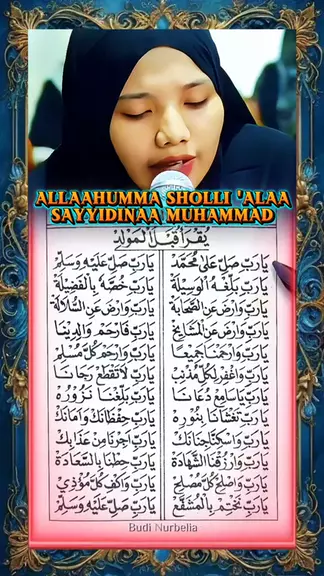 ALLAAHUMMA SHOLLI 'ALAA
SAYYIDINAA MUHAMMAD
يُقْرَأُ قَبْلَ الْمَوْلِدْ
يَارَبِّ صَلِّ عَلَى مُحَمَّدْ يَارَبِّ صَلِّ عَلَيْهِ وَسَلِّمْ
يَارَبِّ بَلِّغْهُ الْوَسِيْلَةْ يَارَبِّ خُصَّهُ بِالْفَضِيْلَةْ
يَارَبِّ وَارْضَ عَنِ الصَّحَابَةْ يَارَبِّ وَارْضَ عَنِ السُّلَالَةْ
يَارَبِّ وَارْضَ عَنِ الْمَشَايِخْ يَارَبِّ فَارْحَمْ وَالِدِيْنَا
يَارَبِّ وَارْحَمْنَا جَمِيْعًا يَارَبِّ وَارْحَمْ كُلَّ مُسْلِمْ
يَارَبِّ وَاغْفِرْ لِكُلِّ مُذْنِبْ يَارَبِّ لَا تَقْطَعْ رَجَانَا
يَارَبِّ يَاسَامِعْ دُعَانَا يَارَبِّ بَلِّغْنَا نَزُوْرُهْ
يَارَبِّ تَغْشَانَا بِنُوْرِهْ يَارَبِّ حِفْظَانَكْ وَامَانَكْ
يَارَبِّ وَاسْكِنَّا جِنَانَكْ يَارَبِّ اَجِرْنَا مِنْ عَذَابِكْ
يَارَبِّ وَارْزُقْنَا الشَّهَادَةْ يَارَبِّ حِطْنَا بِالسَّعَادَةْ
يَارَبِّ وَاصْلِحْ كُلَّ مُصْلِحْ يَارَبِّ وَاكْفِ كُلَّ مُؤْذِيْ
يَارَبِّ نَخْتِمْ بِالْمُشَفَّعْ يَارَبِّ صَلِّ عَلَيْهِ وَسَلِّمْ
Budi Nurbella